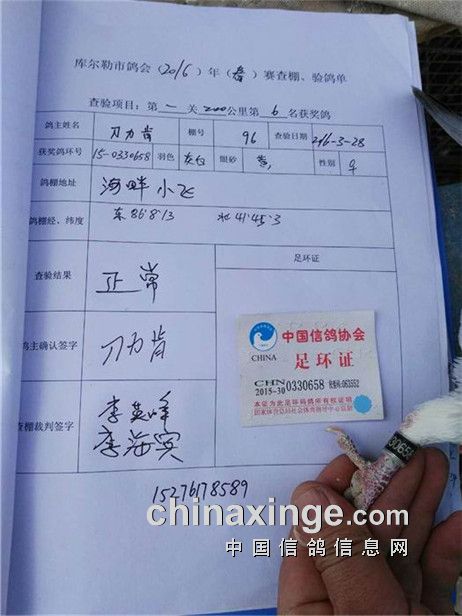 库尔勒市鸽会(2016)年(春)赛查棚、验鸽单
查验项目:第一关200公里第6名获奖鸽
鸽主姓名 刀力肯 棚号 96 查验日期 2016-3-28
获奖鸽环号 15-0330658 羽色 灰白 眼砂 黄 性别 ♀
鸽棚地址 海畔小飞
鸽棚经、纬度 东86°8′13 北41°45′3
查验结果 正常 足环证
鸽主确认签字 刀力肯
查棚裁判签字 李英峰
李海宾
15276178589
中国信鸽协会
CHINA 足环证
CHN
2015-30 0330658 063552
本证为此足环码鸽所有权证明
国家体育总局社会体育指导中心监制
033065
chinaxinge.com
中国信鸽信息网